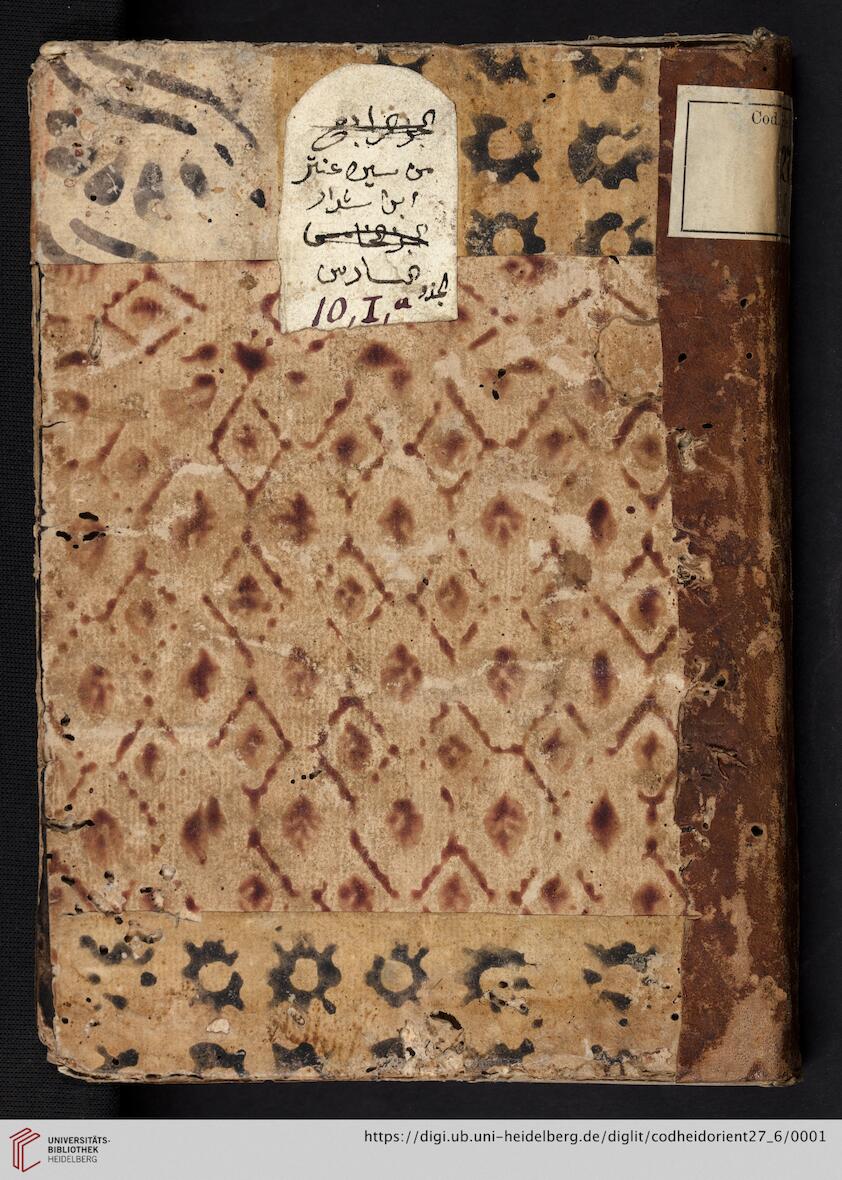 الجزء الرابع
من سيرة عنتر
ابن شداد
الجزء الخامس
السادس
الجذو
10, I, a
Cod.
UNIVERSITÄTS-
BIBLIOTHEK
HEIDELBERG
https://digi.ub.uni-heidelberg.de/diglit/codheidorient27_6/0001